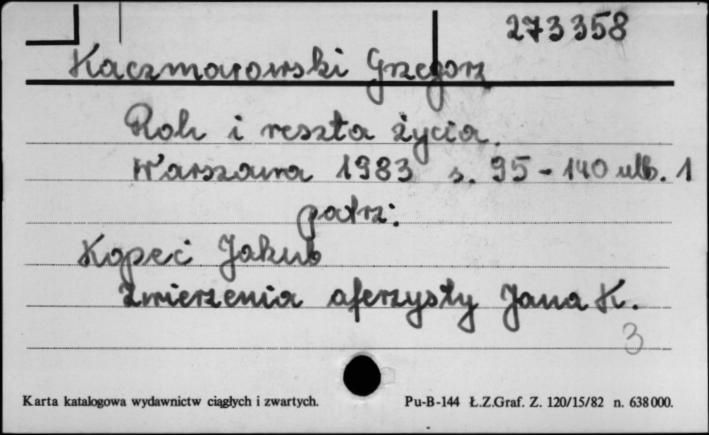 273358
Kaczmarowski Grzegorz
Rok i reszta życia.
Warszawa 1983 s. 95-140 ulb. 1
patrz:
Kopeć Jakub
Zwierzenia aferzysty Jana K.
3
Karta katalogowa wydawnictw ciągłych i zwartych. Pu-B-144 Ł.Z.Graf. Z. 120/15/82 n. 638000.